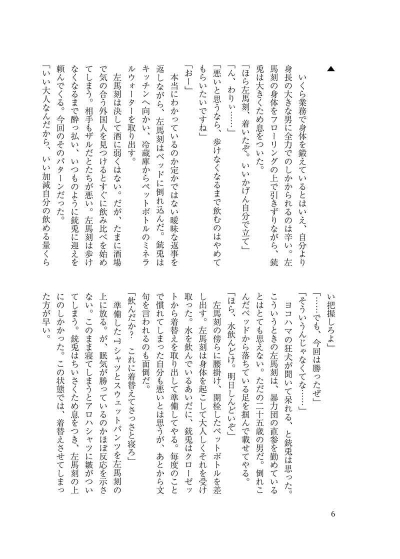 ▲
　いくら業務で身体を鍛えているとはいえ、自分より
身長の大きな男に全力でのしかかられるのは辛い。左
馬刻の身体をフローリングの上で引きずりながら、銃
兎は大きくため息をついた。
「ほら左馬刻、着いたぞ。いいかげん自分で立て」
「ん、わりぃ……」
「悪いと思うなら、歩けなくなるまで飲むのはやめて
もらいたいですね」
「おー」
　本当にわかっているのか定かではない曖昧な返事を
返しながら、左馬刻はベッドに倒れ込んだ。銃兎は
キッチンへ向かい、冷蔵庫からペットボトルのミネラ
ルウォーターを取り出す。
　左馬刻は決して酒に弱くはない。だが、たまに酒場
で気の合う外国人を見つけるとすぐに飲み比べを始め
てしまう。相手もザルだとたちが悪い。左馬刻は歩け
なくなるまで酔っ払い、いつものように銃兎に迎えを
頼んでくる。今回のそのパターンだった。
「いい大人なんだから、いい加減自分の飲める量くら
い把握しろよ」
「……でも、今回は勝ったぜ」
「そういうんじゃなくてな……」
　ヨコハマの狂犬が聞いて呆れる、と銃兎は思った。
こういうときの左馬刻は、暴力団の直参を勤めている
とはとても思えない。ただの二十五歳の男だ。倒れこ
んだベッドから落ちている足を掴んで載せてやる。
「ほら、水飲んどけ。明日しんどいぞ」
　左馬刻の傍らに腰掛け、開栓したペットボトルを差
し出す。左馬刻は身体を起こして大人しくそれを受け
取った。水を飲んでいるあいだに、銃兎はクローゼッ
トから着替えを取り出して準備してやる。毎度のこと
で慣れてしまった自分も悪いとは思うが、あとから文
句を言われるのも面倒だ。
「飲んだか？　これに着替えてさっさと寝ろ」
　準備したＴシャツとスウェットパンツを左馬刻の
上に放る。が、眠気が勝っているのかほぼ反応を示さ
ない。このまま寝てしまうとアロハシャツに皺がつい
てしまう。銃兎はちいさくため息をつき、左馬刻の上
にのしかかった。この状態では、着替えさせてしまっ
た方が早い。
6